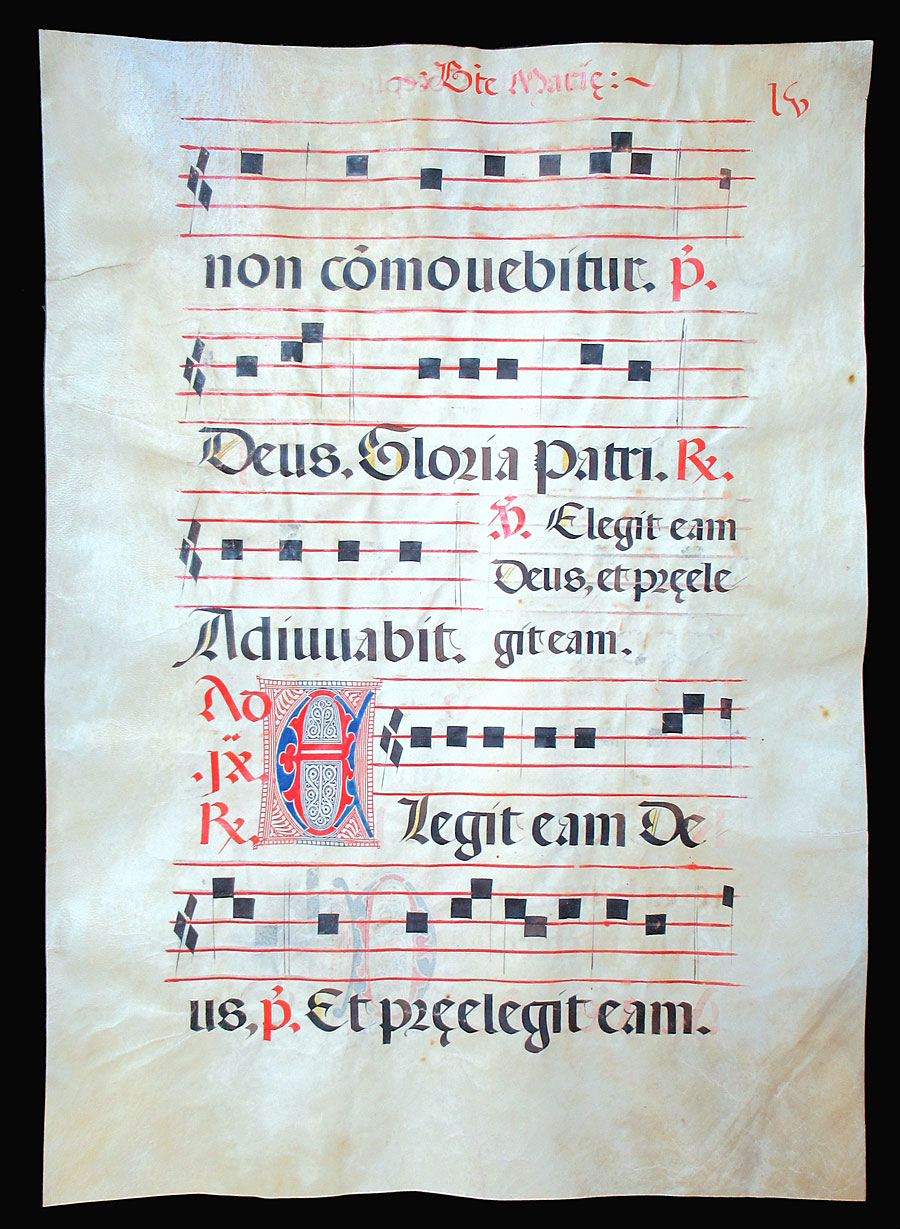 : Bt̄e Marię : ~
non cōmouebitur. p̄.
Deus. Gloria Patri. R̷.
V̷. Elegit eam
Deus, et pręele
Adiuuabit. git eam.
Ad
.jx.
R̷.
ELegit eam De
us, p̄. Et pręelegit eam.